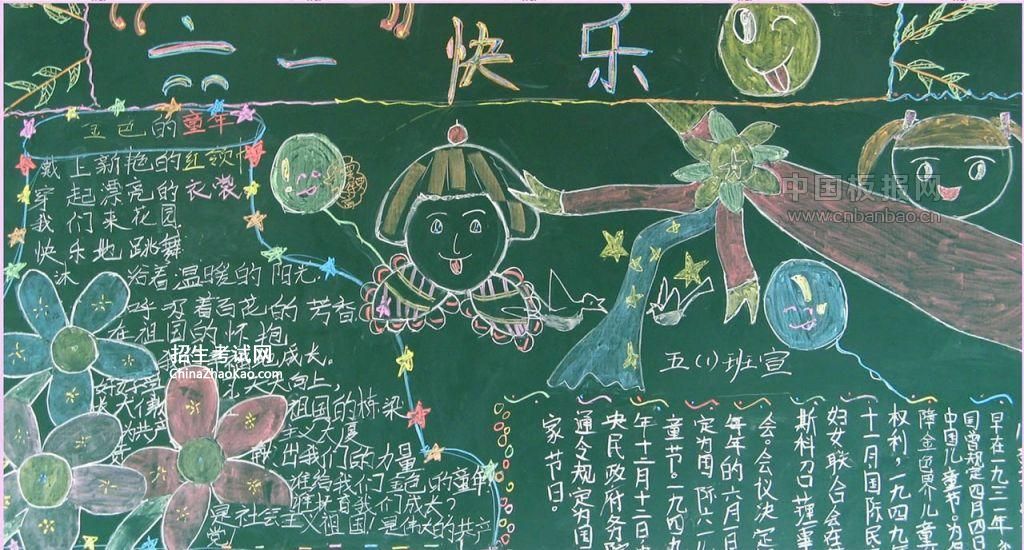 “六一”快乐
金色的童年
戴上新艳的红领巾
穿起漂亮的衣裳
我们来花园
快乐地跳舞
沐浴着温暖的阳光
呼吸着百花的芳香
在祖国的怀抱
成长。
天天向上，
祖国的桥梁
主义大厦
出我们的力量
谁给我们金色的童年
谁抚育我们成长？
是社会主义祖国！是伟大的共产
党！
五(1)班宣
早在一九三一年
国曾规定四月四日
中国儿童节。为保
障全世界儿童
权利，一九四九
十一月国际民
妇女联合会在
斯科召
会。会议决定
每年的六月一日
定为国际六一儿
童节。一九四九
年十二月十二日中
央民政府务院
通令规定为国
家节日。
中国板报网
www.cnbanbao.cn
招生考试网
ChinaZhaoKao.com